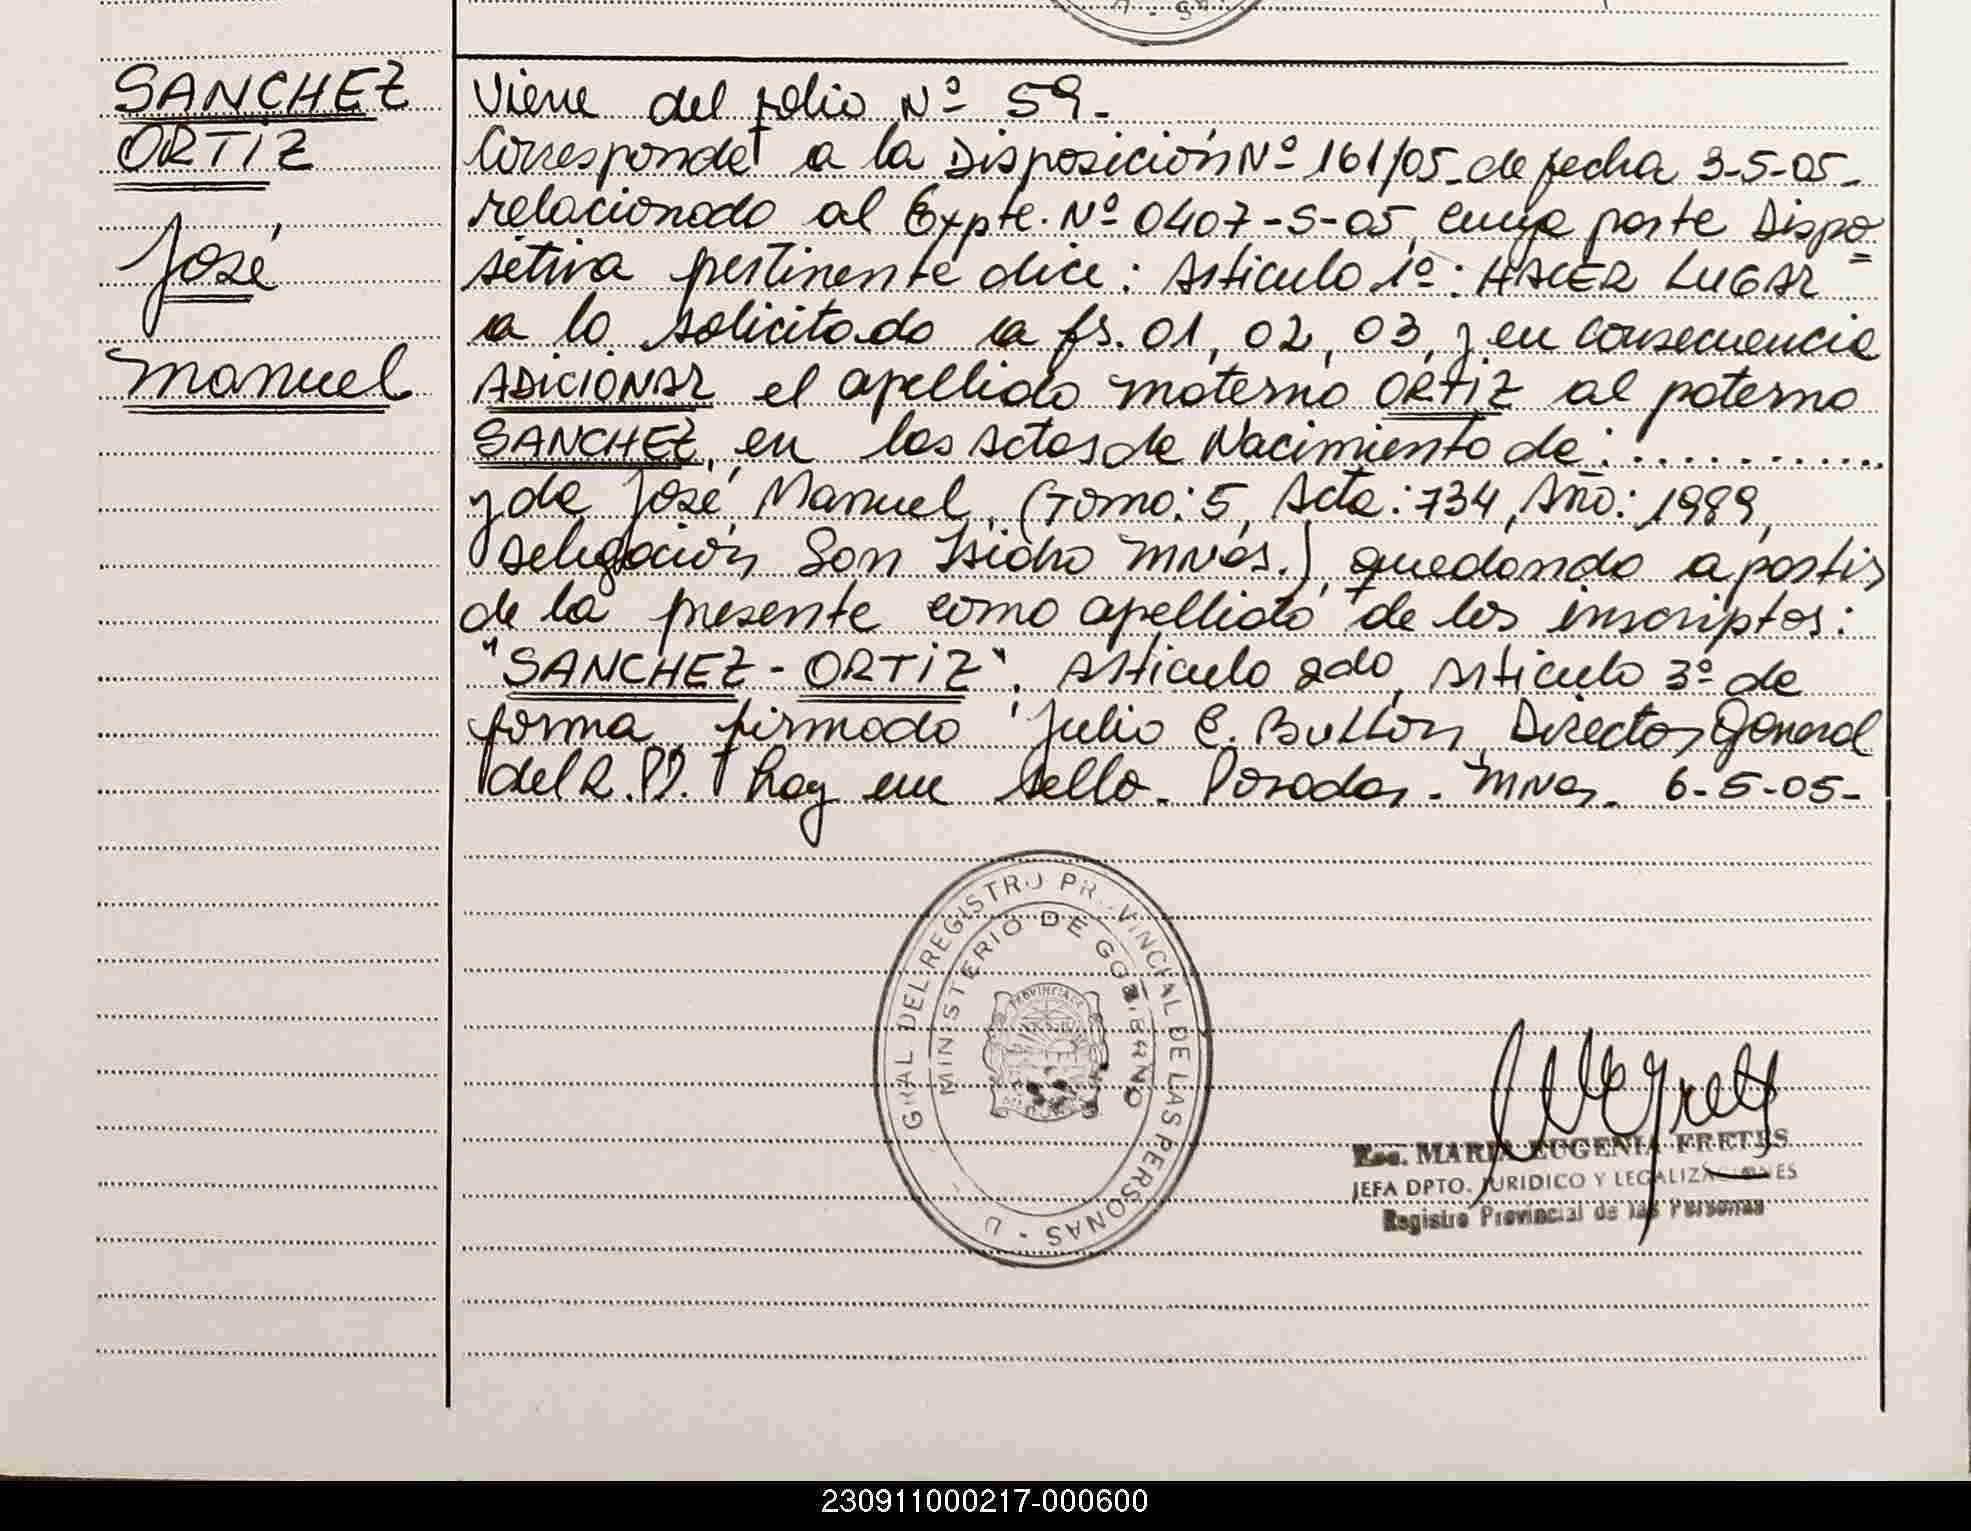 SANCHEZ
ORTIZ
José
Manuel
Viene del folio Nº 59.-
Corresponde a la Disposición Nº 161/05- de fecha 3-5-05-
relacionado al Expte. Nº 0407-S-05, cuya parte Dispo=
sitiva pertinente dice: Articulo 1º: HACER LUGAR
a lo solicitado a fs. 01, 02, 03, y en consecuencia
ADICIONAR el apellido materno ORTIZ al paterno
SANCHEZ, en las actas de Nacimiento de:............
y de José Manuel, (Tomo: 5, Acta: 734, Año: 1989,
Delegación San Isidro Mnes.), quedando a partir
de la presente como apellido de los inscriptos:
"SANCHEZ - ORTIZ". Articulo 2do, Articulo 3º de
forma, firmado Julio C. Director General
del R.P. hay un sello. Posadas - Mnes. 6-5-05-
GRAL DEL REGISTRO PROVINCIAL DE LAS PERSONAS
MINISTERIO DE GOBIERNO
Esc. MARIA EUGENIA FRETES
JEFA DPTO. JURIDICO Y LEGALIZACIONES
Registro Provincial de las Personas
230911000217-000600